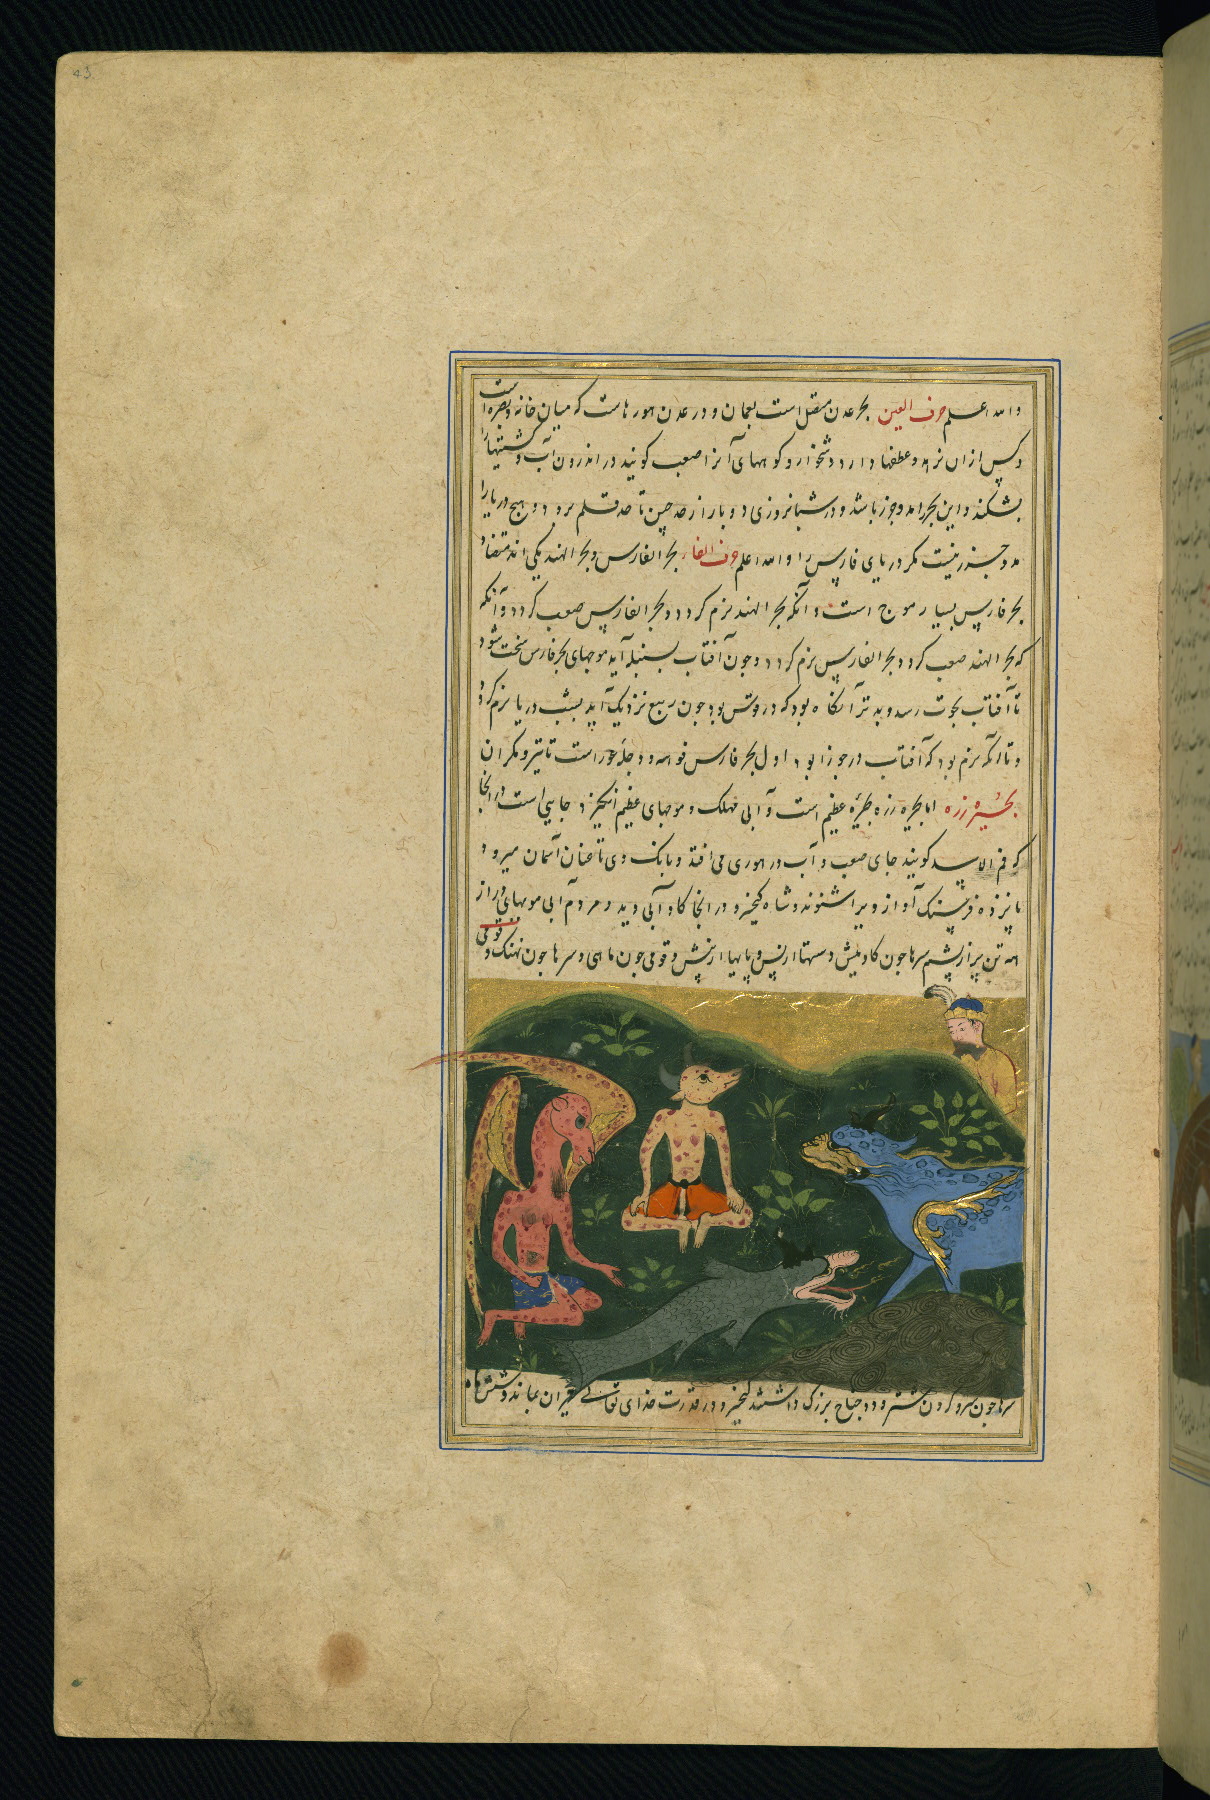 43
والله اعلم حرف العین بحر عدن متصل است بعمان و در عدن هورهاست که میان خانه و بصره است
و پس ازان نرمد و عطفها دارد دشخوار و کوههای آنرا صعب کویند در اندرون آب و کشتیها را
بشکند و این بحر را مد و جزر باشد و در شبانروزی دو بار از حد چین تا حد قلزم رود و هیچ دریا را
مد و جزر نیست مکر دریای فارس را والله اعلم حرف الفا بحر الفارس و بحر الهند یکی اند
بحر فارس بسیار موج است و آنکه بحر الهند نرم کردد بحر الفارس صعب کردد و آنکه
که بحر الهند صعب کردد بحر الفارس نرم کردد و جون آفتاب بسنبله آید موجهای بحر فارس سخت شود
تا آفتاب بحوت رسد و بدترآنکاه بود که در قوس بود جون ربیع نزدیک آید پشت دریا نرم کردد
و تا انکه نرم بود که آفتاب در جوزا بود اول بحر فارس فوهه دجله عوراست تا تیز و مکران
بحیره زره اما بحیره زره بحیره عظیم است و آبی مهلک و موجهای عظیم انکیزد جایی است در انجا
که فم الاسد کویند جای صعب و آب در هوری می افتد و بانک وی تا عنان آسمان میرود
تا پنزده فرسنک آواز ویرا شنوند و شاه کیخسرو در انجا کاو آبی دید و مردم آبی مویهای دراز
همه تن پر از پشم سرها جون کاومیش دستها از پس و پایها از پیش و قومی جون ماهی و سرها جون نهنک و قومی
سرها جون سرو کردن شتر و دو جناح بزرک داشتند کیخسرو در قدرت خدای تعالی حیران بماند و شش ماه